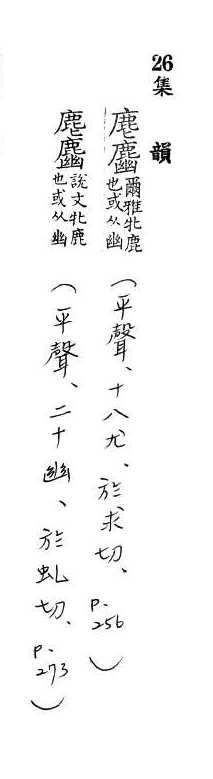 26集 韻
麀 爾雅牝鹿也或从幽(平聲、十八尤、於求切、p.256)
麀 說文牝鹿也或从幽(平聲、二十幽、於虬切、p.273)